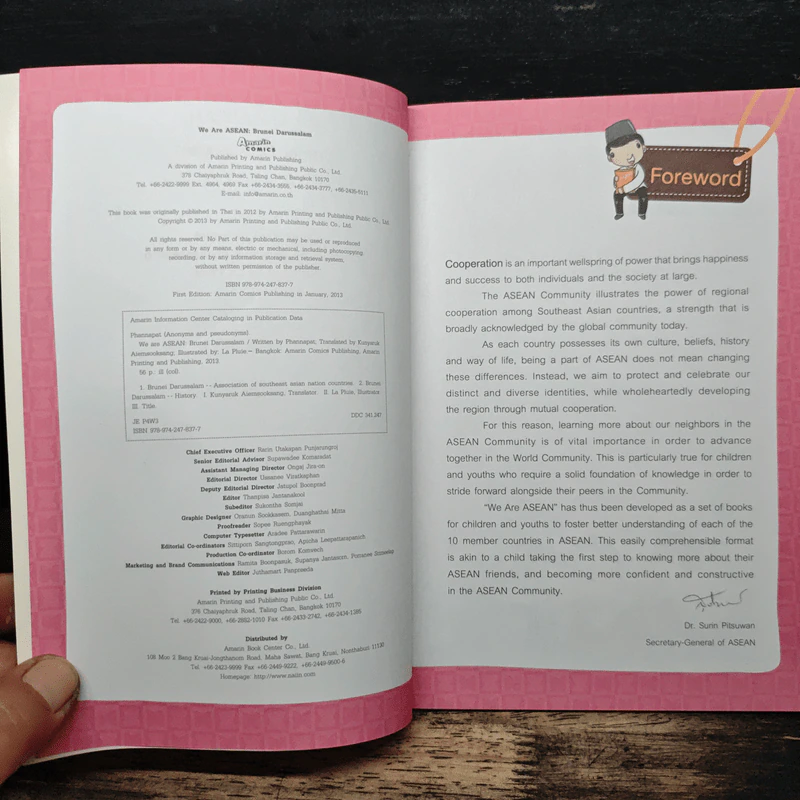 We Are ASEAN: Brunei Darussalam
Amarin
COMICS
Published by Amarin Publishing
A division of Amarin Printing and Publishing Public Co., Ltd.
376 Chaiyaphruk Road, Taling Chan, Bangkok 10170
Tel. +66-2422-9999 Ext. 4964, 4969 Fax +66-2434-3555, +66-2434-3777, +66-2435-5111
E-mail: info@amarin.co.th
This book was originally published in Thai in 2012 by Amarin Printing and Publishing Public Co., Ltd.
Copyright © 2013 by Amarin Printing and Publishing Public Co., Ltd.
All rights reserved. No Part of this publication may be used or reproduced
in any form or by any means, electric or mechanical, including photocopying
recording, or by any information storage and retrieval system,
without written permission of the publisher.
ISBN 978-974-247-637-7
First Edition: Amarin Comics Publishing in January, 2013
Amarin Information Center Cataloging in Publication Data
Phannapat (Anonyma and pseudonyms).
We are ASEAN: Brunei Darussalam / Written by Phannapat; Translated by Kunyaruk
Aiemsooksang; Illustrated by: La Plute.-- Bangkok: Amarin Comics Publishing, Amarin
Printing and Publishing, 2013
56 p.: ill (col).
1. Brunei Darussalam -- Association of southeast asian nation countries. 2. Brunei
Darussalam -- History. I. Kunyaruk Aiemsooksang, Translator. II. La Plute, Illustrator.
III. Title.
JE P4W3 DDC 341.247
ISBN 978-974-247-637-7
Chief Executive Officer Rarin Utakapan Punjarungroj
Senior Editorial Advisor Supawadee Komaradat
Assistant Managing Director Ongaj Jira-on
Editorial Director Usanee Viratkaphan
Deputy Editorial Director Jatupol Boonprad
Editor Thanpisa Jantanakool
Subeditor Sukontha Somjai
Graphic Designer Orasun Sookkaseen, Duanghathai Mitra
Proofreader Sopee Ruengphayak
Computer Typesetter Arades Fattarawarin
Editorial Co-ordinators Sittiporn Sangtongprao, Apinha Leepattarapanich
Production Co-ordinator Borom Komsech
Marketing and Brand Communications Ramita Boonpasuk, Supanya
Web Editor Juthamart Panpreeda
Printed by Printing Business Division
Amarin Printing and Publishing Public Co., Ltd.
376 Chaiyaphruk Road, Taling Chan, Bangkok 10170
Tel. +66-2422-9000, +66-2882-1010 Fax +66-2433-2742, +66-2434-1385
Distributed by
Amarin Book Center Co., Ltd.
108 Moo 2 Bang Kruai-Jongthanom Road, Maha Sawat, Bang Kruai, Nonthaburi 11130
Tel. +66-2423-9999 Fax +66-2449-9222, +66-2449-9500-6
Homepage: http://www.naiin.com
Foreword
Cooperation is an important wellspring of power that brings happiness
and success to both individuals and the society at large.
The ASEAN Community illustrates the power of regional
cooperation among Southeast Asian countries, a strength that is
broadly acknowledged by the global community today.
As each country possesses its own culture, beliefs, history
and way of life, being a part of ASEAN does not mean changing
these differences. Instead, we aim to protect and celebrate our
distinct and diverse identities, while wholeheartedly developing
the region through mutual cooperation.
For this reason, learning more about our neighbors in the
ASEAN Community is of vital importance in order to advance
together in the World Community. This is particularly true for children
and youths who require a solid foundation of knowledge in order to
stride forward alongside their peers in the Community.
"We Are ASEAN" has thus been developed as a set of books
for children and youths to foster better understanding of each of the
10 member countries in ASEAN. This easily comprehensible format
is akin to a child taking the first step to knowing more about their
ASEAN friends, and becoming more confident and constructive
in the ASEAN Community.
Dr. Surin Pitsuwan
Secretary-General of ASEAN